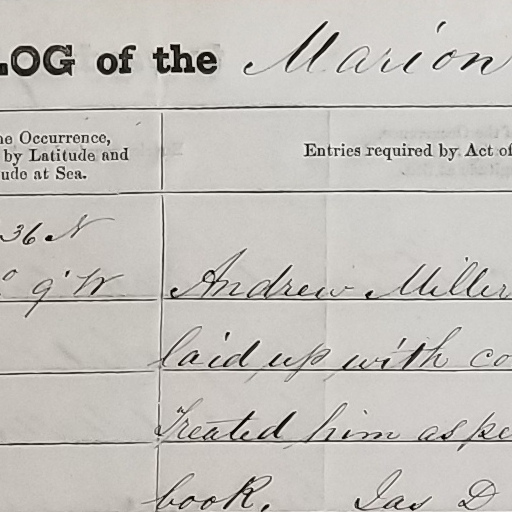 LOG of the Marion
Occurrence,
by Latitude and
at Sea.
Entries required by Act of
36 N
9' W
Andrew Miller
laid up with
Treated him as
book. Jas D